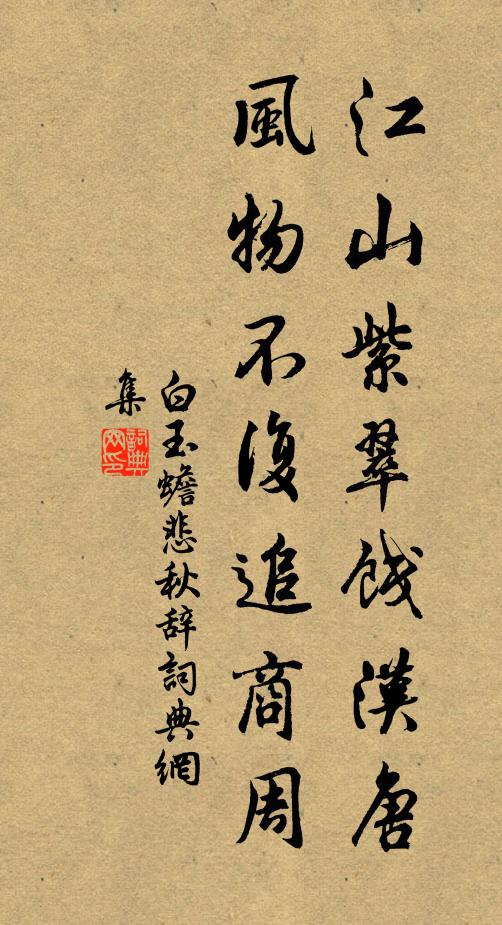 江山紫翠餞漢唐
風物不復追商周
白玉蟾悲秋辞詞典網
集
詞典網印